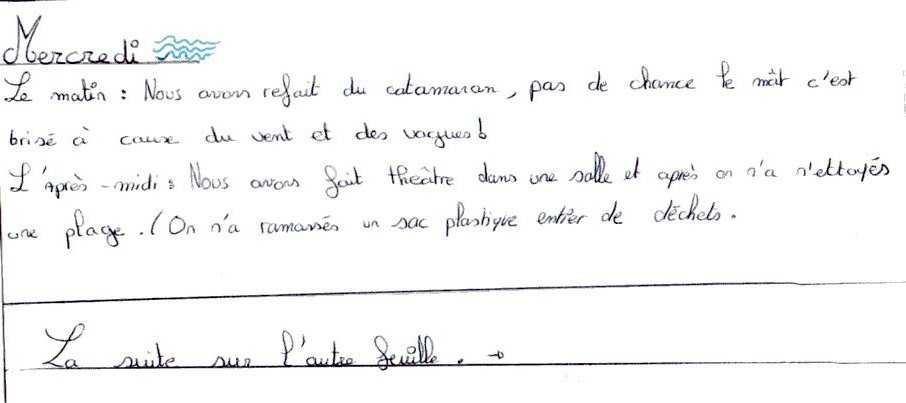 Mercredi
Le matin : Nous avons refait du catamaran, pas de chance le mât c'est
brisé à cause du vent et des vagues !
L'Après-midi : Nous avons fait théâtre dans une salle et après on n'a n'ettoyés
une plage. (On n'a ramassés un sac plastique entier de déchets.
La suite sur l'autre feuille. →